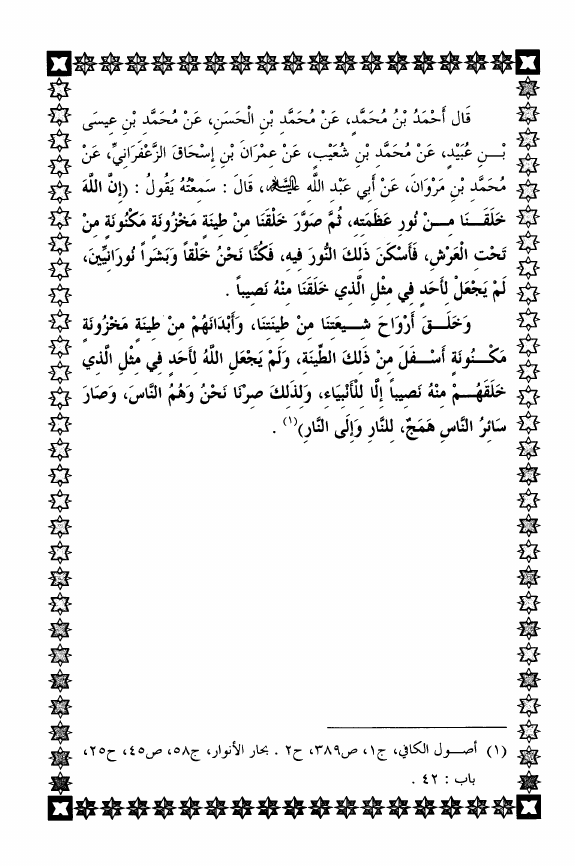 قَال أَحْمَدُ بْنُ مُحَمَّدٍ، عَنْ مُحَمَّدِ بْنِ الْحَسَنِ، عَنْ مُحَمَّدِ بْنِ عِيسَى
بْـنِ عُبَيْدٍ، عَنْ مُحَمَّدِ بْنِ شُعَيْبٍ، عَنْ عِمْرَانَ بْنِ إِسْحَاقَ الزَّعْفَرَانِيِّ، عَنْ
مُحَمَّدِ بْنِ مَرْوَانَ، عَنْ أَبِي عَبْدِ اللَّهِ عليه السلام، قَالَ : سَمِعْتُهُ يَقُولُ : (إِنَّ اللَّهَ
خَلَقَـنَا مِـنْ نُورِ عَظَمَتِهِ، ثُمَّ صَوَّرَ خَلْقَنَا مِنْ طِينَةٍ مَخْزُونَةٍ مَكْنُونَةٍ مِنْ
تَحْتِ الْعَرْشِ، فَأَسْكَنَ ذَلِكَ النُّورَ فِيهِ، فَكُنَّا نَحْنُ خَلْقاً وَبَشَراً نُورَانِيِّينَ،
لَمْ يَجْعَلْ لِأَحَدٍ فِي مِثْلِ الَّذِي خَلَقَنَا مِنْهُ نَصِيباً .
وَخَلَـقَ أَرْوَاحَ شِـيعَتِنَا مِنْ طِينَتِنَا، وَأَبْدَانَهُمْ مِنْ طِينَةٍ مَخْزُونَةٍ
مَكْـنُونَةٍ أَسْـفَلَ مِنْ ذَلِكَ الطِّينَةِ، وَلَمْ يَجْعَلِ اللَّهُ لِأَحَدٍ فِي مِثْلِ الَّذِي
خَلَقَهُـمْ مِنْهُ نَصِيباً إِلَّا لِلْأَنْبِيَاءِ، وَلِذَلِكَ صِرْنَا نَحْنُ وَهُمُ النَّاسَ، وَصَارَ
سَائِرُ النَّاسِ هَمَجٌ، لِلنَّارِ وَإِلَى النَّارِ)(١) .
(١) أصـول الكافي، ج١، ص٣٨٩، ح٢ . بحار الأنوار، ج٥٨، ص٤٥، ح٢٥،
باب : ٤٢ .